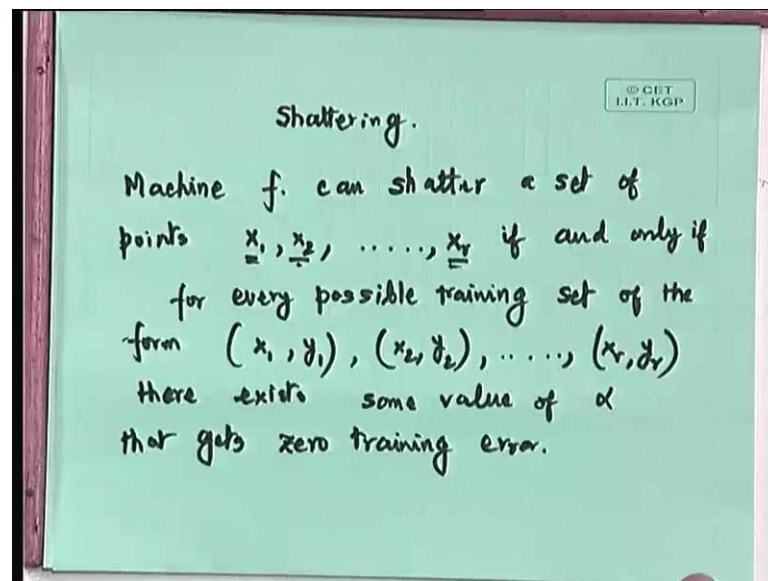 © CET
I.I.T. KGP
Shattering.
Machine f. can shatter a set of
points x₁, x₂, ....., xᵣ if and only if
for every possible training set of the
form (x₁, y₁), (x₂, y₂), ....., (xᵣ, yᵣ)
there exists some value of α
that gets zero training error.